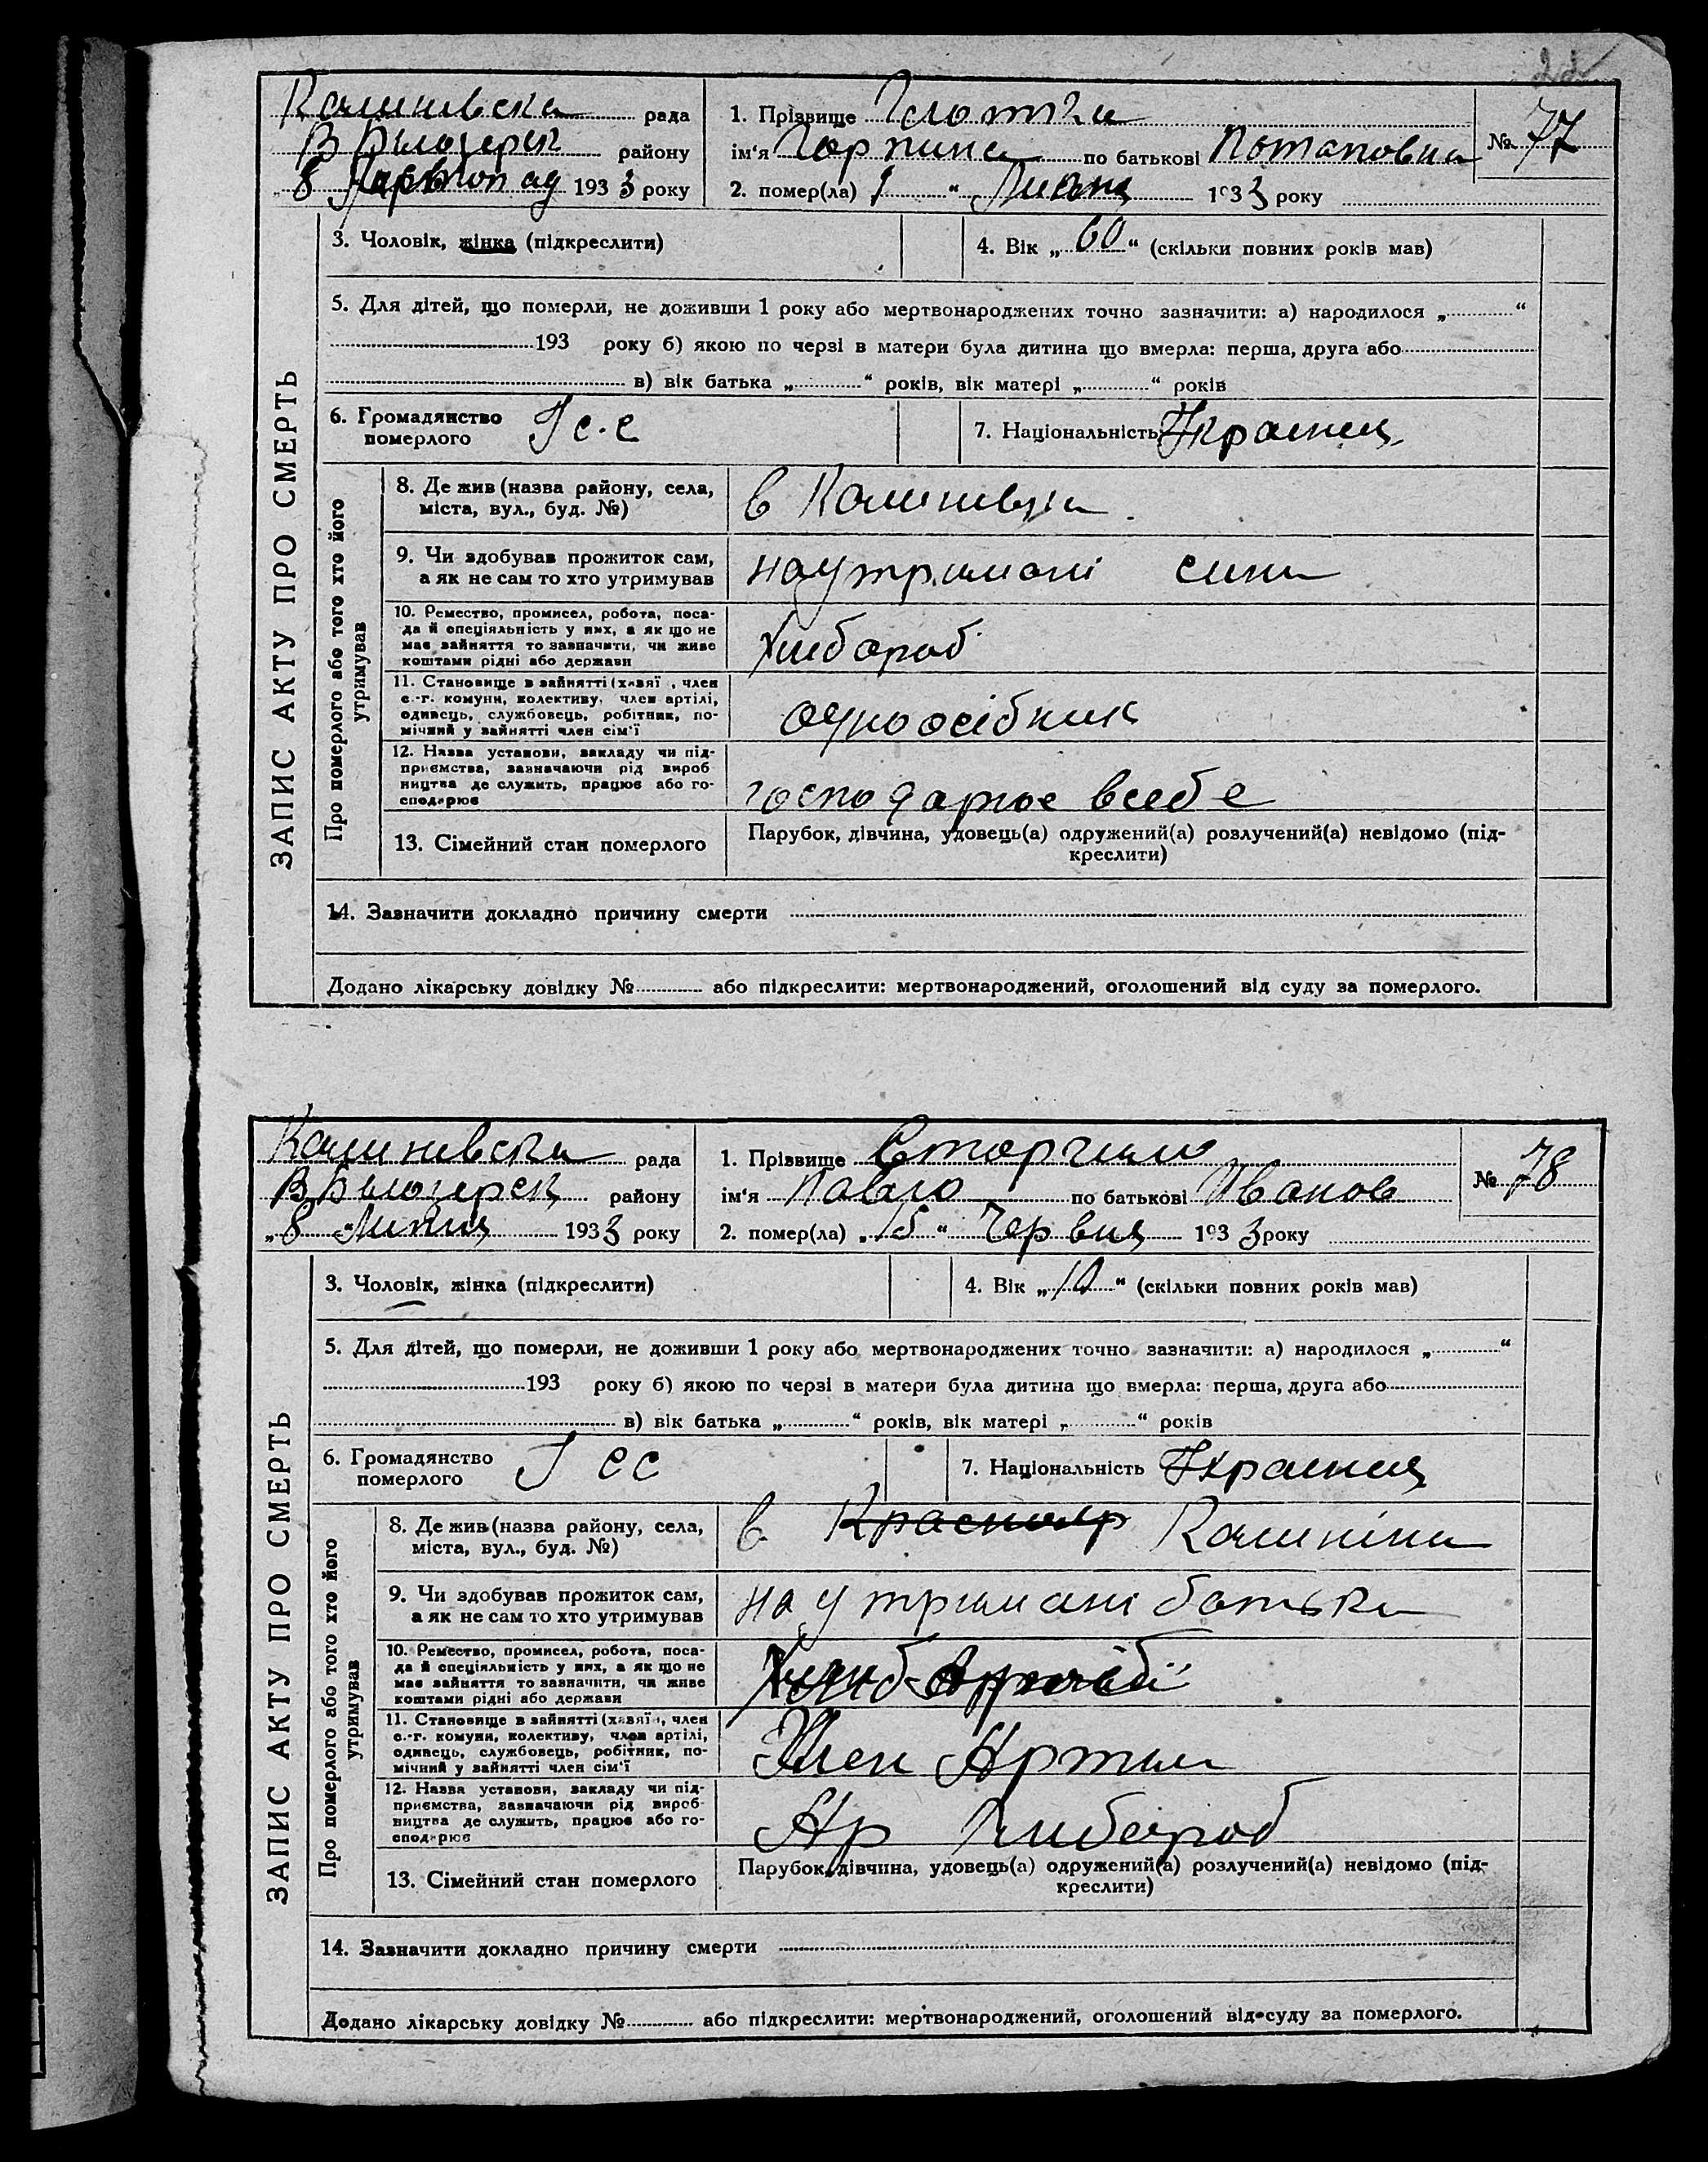 Калинівска рада
В Білозерск району
„ 8 193 3 року
1. Прізвище
ім'я Горпина по батькові Потаповна
2. помер(ла) „ “ 193 3 року
№ 77
3. Чоловік, жінка (підкреслити)
4. Вік „ 60 “ (скільки повних років мав)
5. Для дітей, що померли, не доживши 1 року або мертвонароджених точно зазначити: а) народилося „ “
193 року б) якою по черзі в матери була дитина що вмерла: перша, друга або
в) вік батька „ “ років, вік матері „ “ років
6. Громадянство
померлого
7. Національність Украинец
ЗАПИС АКТУ ПРО СМЕРТЬ
Про померлого або того хто його
утримував
8. Де жив (назва району, села,
міста, вул., буд. №)
в Калинівки
9. Чи здобував прожиток сам,
а як не сам то хто утримував
на утримані сина
10. Ремество, промисел, робота, поса-
да й спеціяльність у них, а як що не
має зайняття то зазначити, чи живе
коштами рідні або держави
Хлибороб
11. Становище в зайнятті (хазяї , член
с.-г. комуни, колективу, член артілі,
одинець, службовець, робітник, по-
мічний у зайнятті член сім'ї
одноосібник
12. Назва установи, закладу чи під-
приємства, зазначаючи рід вироб
ництва де служить, працює або го-
сподарює
господарює всебе
13. Сімейний стан померлого
Парубок, дівчина, удовець(а) одружений(а) розлучений(а) невідомо (під-
креслити)
14. Зазначити докладно причину смерти
Додано лікарську довідку № або підкреслити: мертвонароджений, оголошений від суду за померлого.
Калинивска рада
В Білозерск району
„ 8 “ Липня 193 3 року
1. Прізвище Сторчило
ім'я Павло по батькові Иванов
2. помер(ла) „ 15 “ Червня 193 3 року
№ 78
3. Чоловік, жінка (підкреслити)
4. Вік „ “ (скільки повних років мав)
5. Для дітей, що померли, не доживши 1 року або мертвонароджених точно зазначити: а) народилося „ “
193 року б) якою по черзі в матери була дитина що вмерла: перша, друга або
в) вік батька „ “ років, вік матері „ “ років
6. Громадянство
померлого
7. Національність Украинец
ЗАПИС АКТУ ПРО СМЕРТЬ
Про померлого або того хто його
утримував
8. Де жив (назва району, села,
міста, вул., буд. №)
в Калиніни
9. Чи здобував прожиток сам,
а як не сам то хто утримував
на утримані батька
10. Ремество, промисел, робота, поса-
да й спеціяльність у них, а як що не
має зайняття то зазначити, чи живе
коштами рідні або держави
11. Становище в зайнятті (хазяї , член
с.-г. комуни, колективу, член артілі,
одинець, службовець, робітник, по-
мічний у зайнятті член сім'ї
Член Артили
12. Назва установи, закладу чи під-
приємства, зазначаючи рід вироб-
ництва де служить, працює або го-
сподарює
Ар Хлибороб
13. Сімейний стан померлого
Парубок, дівчина, удовець(а) одружений(а) розлучений(а) невідомо (під-
креслити)
14. Зазначити докладно причину смерти
Додано лікарську довідку № або підкреслити: мертвонароджений, оголошений від суду за померлого.